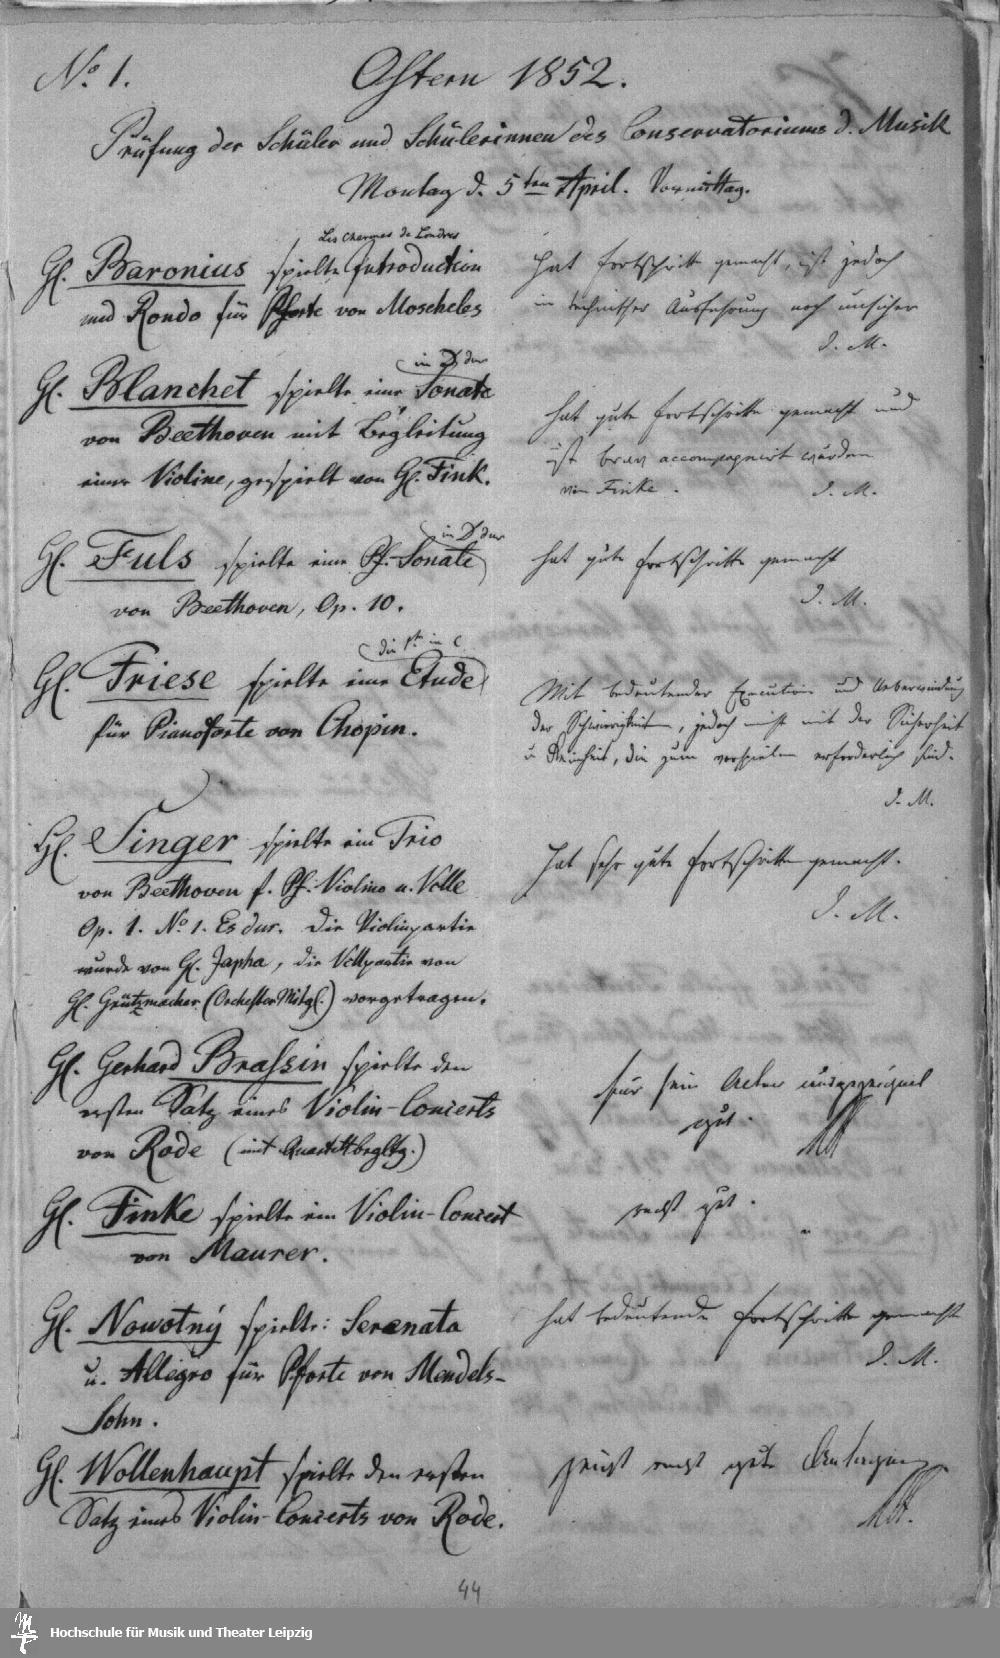 No 1. Ostern 1852.
Prüfung der Schüler und Schülerinnen des Conservatoriums d. Musik
Montag d. 5ten April. Vormittag.
Les Charmes de Londres
H. Baronius spielte Introduction
und Rondo für Pforte von Moscheles
hat Fortschritte gemacht, ist jedoch
in technischer Ausführung noch unsicher
I. M.
in D dur
H. Blanchet spielte eine Sonate
von Beethoven mit Begleitung
einer Violine, gespielt von H. Fink.
hat gute Fortschritte gemacht und
ist brav accompagnirt worden
von Finke.
I. M.
in D dur
H. Fuls spielte eine Pf. Sonate
von Beethoven, Op. 10.
hat gute Fortschritte gemacht
I. M.
die 1te in C
H. Friese spielte eine Etude
für Pianoforte von Chopin.
Mit bedeutender Execution und Ueberwindung
der Schwierigkeiten, jedoch nicht mit der Sicherheit
u Reinheit, die zum vorspielen erforderlich sind.
I. M.
H. Singer spielte ein Trio
von Beethoven f. Pf. Violine u. Vclle
Op. 1. No 1. Es dur. Die Violinpartie
wurde von H. Japha, die Vcllpartie von
H. Grützmacher (Orchester Mitgl.) vorgetragen.
hat sehr gute Fortschritte gemacht.
I. M.
H. Gerhard Brassin spielte den
ersten Satz eines Violin-Concerts
von Rode (mit Quartettbegltg.)
für sein Alter ausgezeichnet
gut.
H. Finke spielte ein Violin-Concert
von Maurer.
recht gut.
"
H. Nowotný spielte: Serenata
u. Allegro für Pforte von Mendels-
sohn.
hat bedeutende Fortschritte gemacht
I. M.
H. Wollenhaupt spielte den ersten
Satz eines Violin-Concerts von Rode.
zeigt recht gute Anlagen
44
Hochschule für Musik und Theater Leipzig